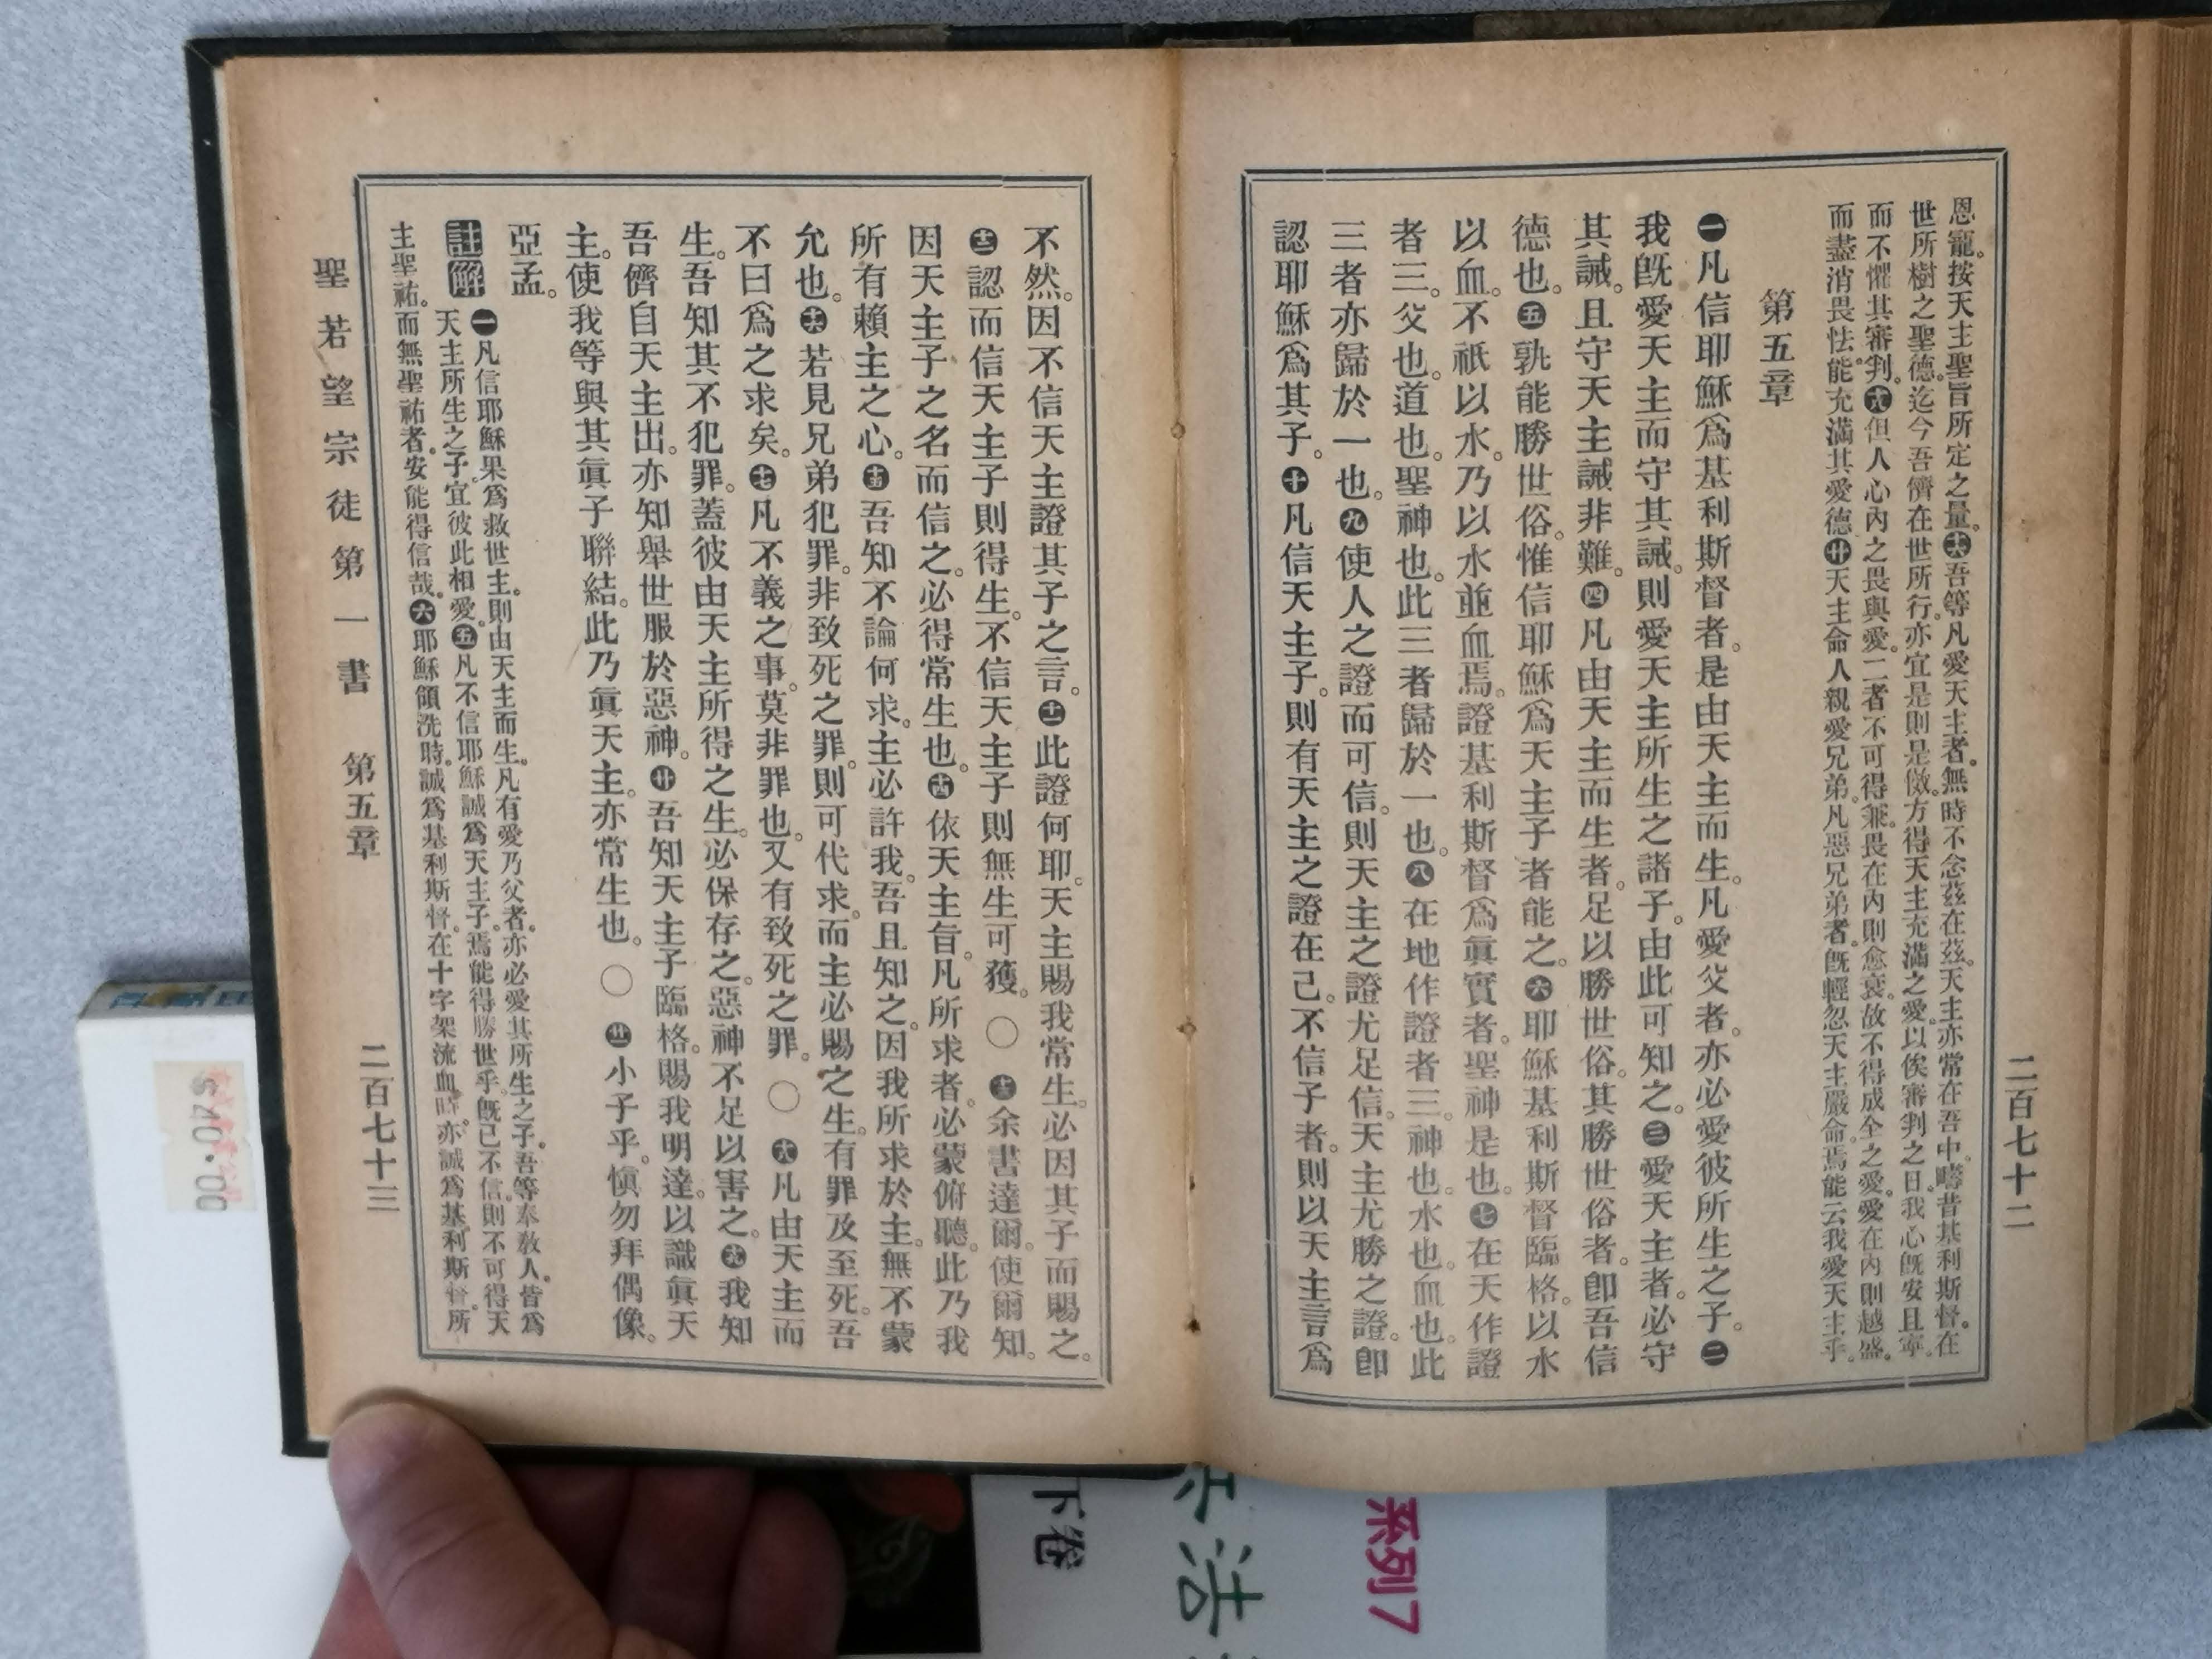 二百七十二
恩寵。按天主聖旨所定之量。十六吾等凡愛天主者。無時不念茲在茲。天主亦常在吾中。疇昔基利斯督。在
世所樹之聖德。迄今吾儕在世所行。亦宜是則是傚。方得天主充滿之愛。以俟審判之日。我心既安且寧。
而不懼其審判。十八但人心內之畏與愛。二者不可得兼。畏在內則愈衰。故不得成全之愛。愛在內則越盛。
而盡消畏怯。能充滿其愛德。廿天主命人親愛兄弟。凡惡兄弟者。既輕忽天主嚴命。焉能云我愛天主乎。
第五章
一凡信耶穌爲基利斯督者。是由天主而生。凡愛父者。亦必愛彼所生之子。二
我既愛天主而守其誡。則愛天主所生之諸子。由此可知之。三愛天主者。必守
其誡。且守天主誡非難。四凡由天主而生者。足以勝世俗。其勝世俗者。卽吾信
德也。五孰能勝世俗。惟信耶穌爲天主子者能之。六耶穌基利斯督臨格。以水
以血。不祇以水。乃以水並血焉。證基利斯督爲眞實者。聖神是也。七在天作證
者三。父也。道也。聖神也。此三者歸於一也。八在地作證者三。神也。水也。血也。此
三者亦歸於一也。九使人之證而可信。則天主之證尤足信。天主尤勝之證。卽
認耶穌爲其子。十凡信天主子。則有天主之證在己。不信子者。則以天主言爲
不然。因不信天主證其子之言。十一此證何耶。天主賜我常生。必因其子而賜之。
十二認而信天主子則得生。不信天主子則無生可獲。〇十三余書達爾。使爾知。
因天主子之名而信之。必得常生也。十四依天主旨。凡所求者。必蒙俯聽。此乃我
所有賴主之心。十五吾知不論何求。主必許我。吾且知之。因我所求於主。無不蒙
允也。十六若見兄弟犯罪。非致死之罪。則可代求。而主必賜之生。有罪及至死。吾
不曰爲之求矣。十七凡不義之事。莫非罪也。又有致死之罪。〇十八凡由天主而
生。吾知其不犯罪。蓋彼由天主所得之生。必保存之。惡神不足以害之。十九我知
吾儕自天主出。亦知舉世服於惡神。廿吾知天主子臨格。賜我明達。以識眞天
主。使我等與其眞子聯結。此乃眞天主。亦常生也。〇廿一小子乎。愼勿拜偶像。
亞孟。
註解 一凡信耶穌果爲救世主。則由天主而生。凡有愛乃父者。亦必愛其所生之子。吾等奉敎人。皆爲
天主所生之子。宜彼此相愛。五凡不信耶穌誠爲天主子。焉能得勝世乎。既已不信。則不可得天
主聖祐。而無聖祐者。安能得信哉。六耶穌領洗時。誠爲基利斯督。在十字架流血時。亦誠爲基利斯督。所
聖若望宗徒第一書 第五章 二百七十三
$40.00
下卷
活
系列7